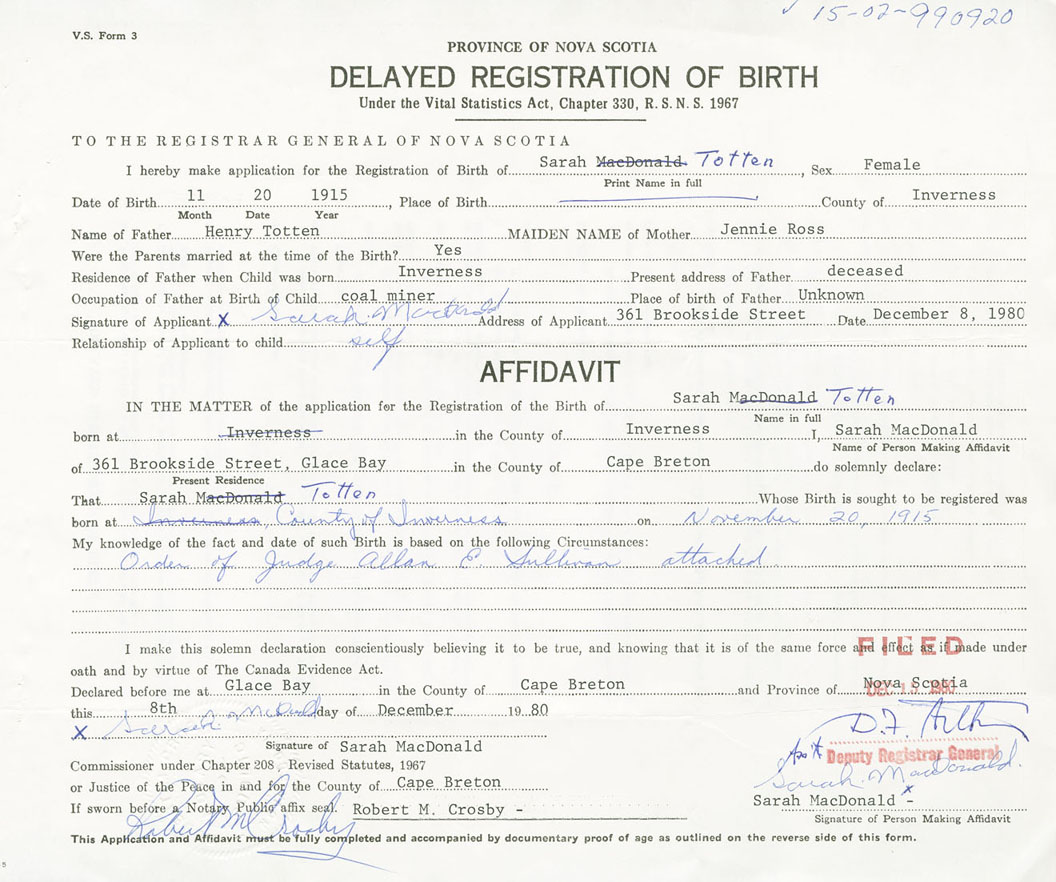 15-02-990920
V.S. Form 3
PROVINCE OF NOVA SCOTIA
DELAYED REGISTRATION OF BIRTH
Under the Vital Statistics Act, Chapter 330, R. S. N. S. 1967
TO THE REGISTRAR GENERAL OF NOVA SCOTIA
I hereby make application for the Registration of Birth of Sarah MacDonald Totten, Sex Female
Print Name in full
Date of Birth 11 20 1915, Place of Birth County of Inverness
Month Date Year
Name of Father Henry Totten MAIDEN NAME of Mother Jennie Ross
Were the Parents married at the time of the Birth? Yes
Residence of Father when Child was born Inverness Present address of Father deceased
Occupation of Father at Birth of Child coal miner Place of birth of Father Unknown
Signature of Applicant X Sarah MacDonald Address of Applicant 361 Brookside Street Date December 8, 1980
Relationship of Applicant to child self
AFFIDAVIT
IN THE MATTER of the application for the Registration of the Birth of Sarah MacDonald Totten
Name in full
born at Inverness in the County of Inverness I, Sarah MacDonald
Name of Person Making Affidavit
of 361 Brookside Street, Glace Bay in the County of Cape Breton do solemnly declare:
Present Residence
That Sarah MacDonald Totten Whose Birth is sought to be registered was
born at Inverness, County of Inverness on November 20, 1915
My knowledge of the fact and date of such Birth is based on the following Circumstances:
Order of Judge Allan E. Sullivan attached.
I make this solemn declaration conscientiously believing it to be true, and knowing that it is of the same force and effect as if made under
FILED
oath and by virtue of The Canada Evidence Act.
Declared before me at Glace Bay in the County of Cape Breton and Province of Nova Scotia
DEC 15 1980
this 8th day of December 1980
X Sarah MacDonald
Signature of Sarah MacDonald
Deputy Registrar General
Commissioner under Chapter 208, Revised Statutes, 1967
Sarah MacDonald.
or Justice of the Peace in and for the County of Cape Breton
X
Sarah MacDonald -
If sworn before a Notary Public affix seal. Robert M. Crosby -
Signature of Person Making Affidavit
Robert M Crosby
This Application and Affidavit must be fully completed and accompanied by documentary proof of age as outlined on the reverse side of this form.
5